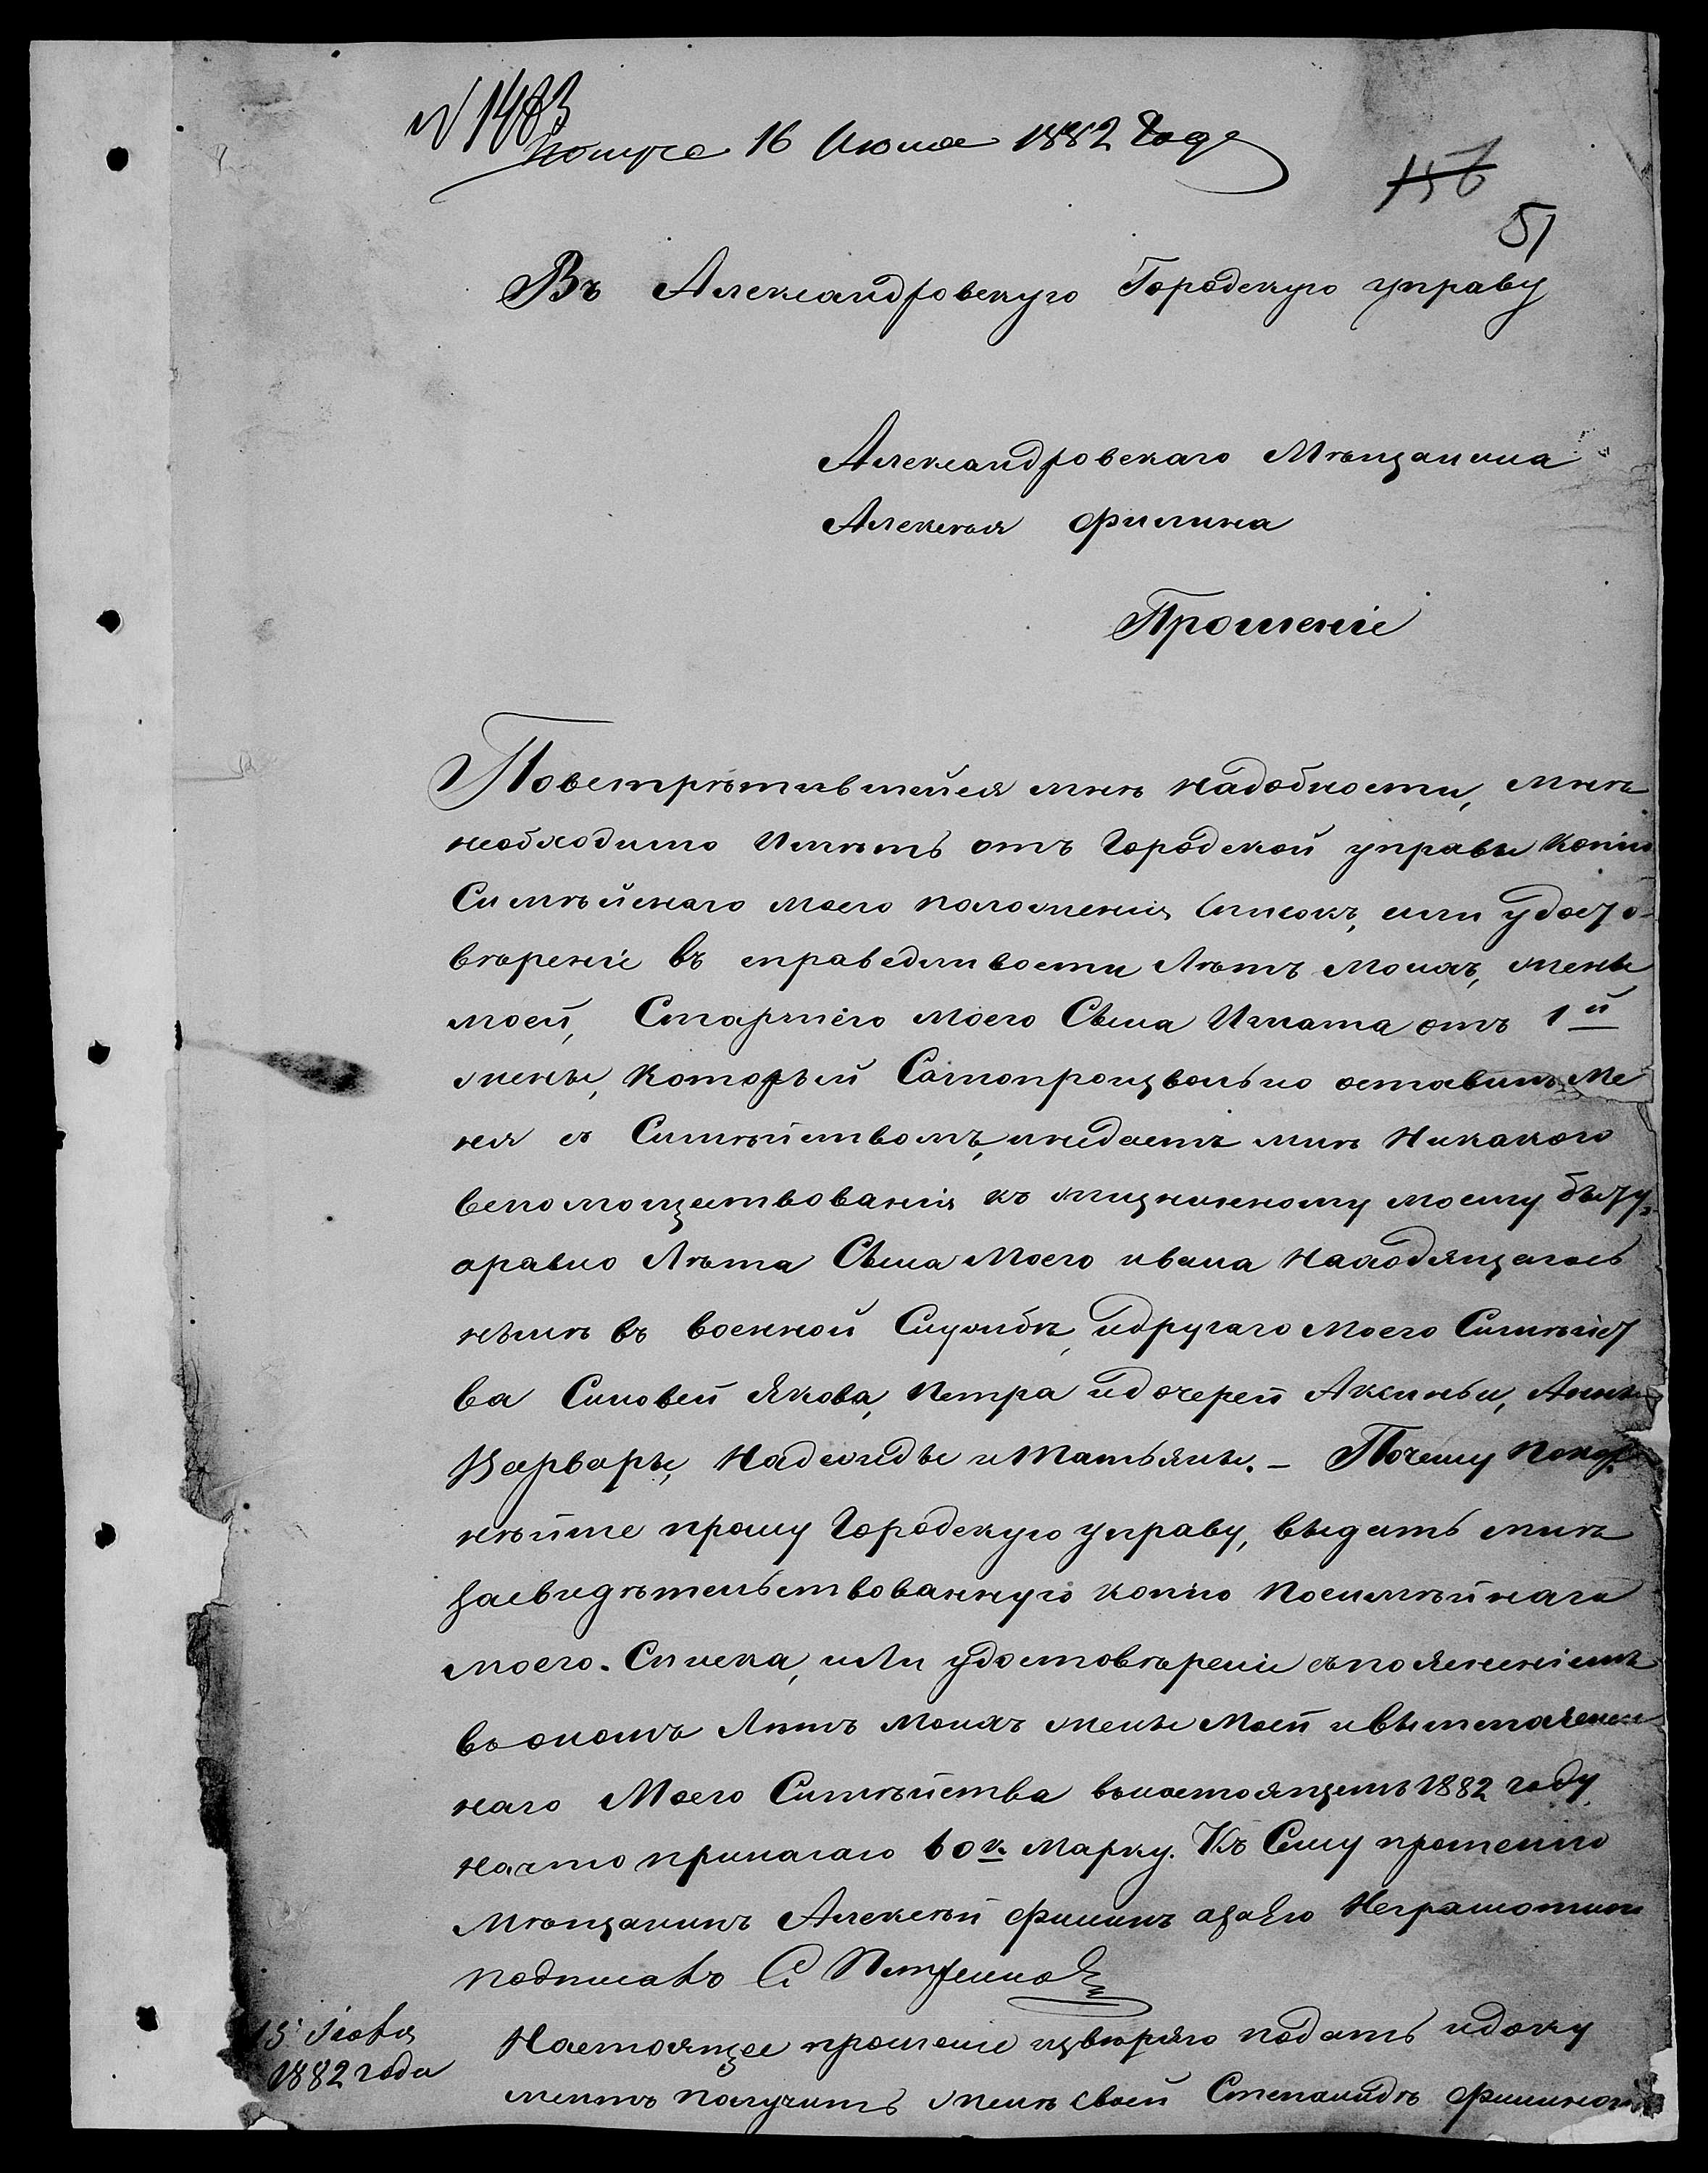 № 1483
Получе 16 Июня 1882 года
156
51
Въ Александровскую Городскую управу
Александровскаго Мѣщанина
Алексѣя Филина
Прошеніе
Повстрѣтившейся мнѣ надобности, мнѣ
необходимо Имѣть отъ Городской управы копію
Симѣйнаго моего положенія Списокъ, или удосто-
вѣреніе въ справедливости Лѣтъ моихъ, жены
моей, Старшего моего Сына Игната отъ 1й
жены, который Самопроизвольно оставилъ Ме
ня съ Симѣйствомъ, инедаетъ мнѣ Никакого
вспомоществованія къ жизненному моему быту,
аравно Лѣта Сына Моего ивана Находящагось
нынѣ въ военной Службѣ, идругаго моего Симѣйст
ва Синовей Якова, Петра идочерей Аксиньи, Анны
Варвары, Надежды иТатьяны. – Почему Покор
нѣйше прошу Городскую управу, выдать мнѣ
засвидѣтельствованную копію Посимѣйнаго
моего. Списка, или удостовѣреніе съпоясненіемъ
въ ономъ Лѣтъ моихъ жены Моей и вышепоясне
наго Моего Симѣйства вънастоящемъ 1882 году
начто прилагаю 60 к. Марку. Къ Сему прошенію
Мѣщанинъ Алексѣй Филинъ азаего Неграмотнаго
подписалъ
Настоящее прошеніе извѣряю подать идоку
ментъ получить женѣ своей Степанидѣ Филиной
15 Іюня
1882 года